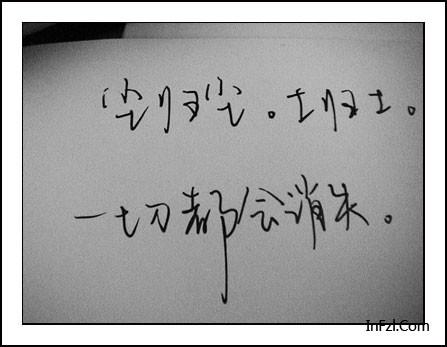 尘归尘。土归土。
一切都会消失。
InFzl.Com